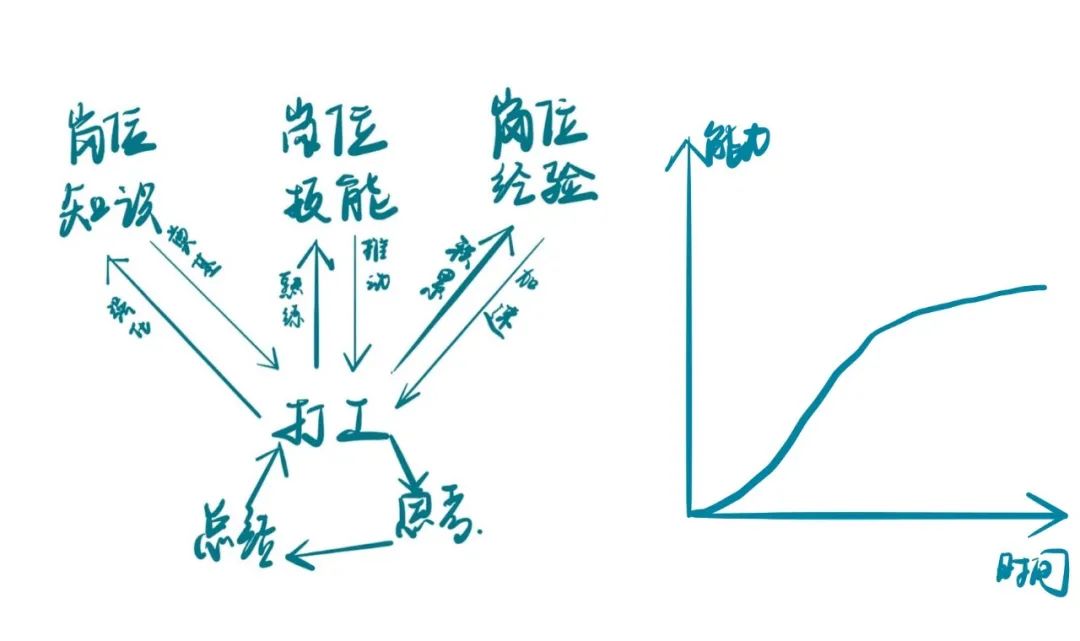 岗位
知识
岗位
技能
岗位
经验
奠基
强化
熟练
推动
积累
加速
打工
总结
思考
能力
时间